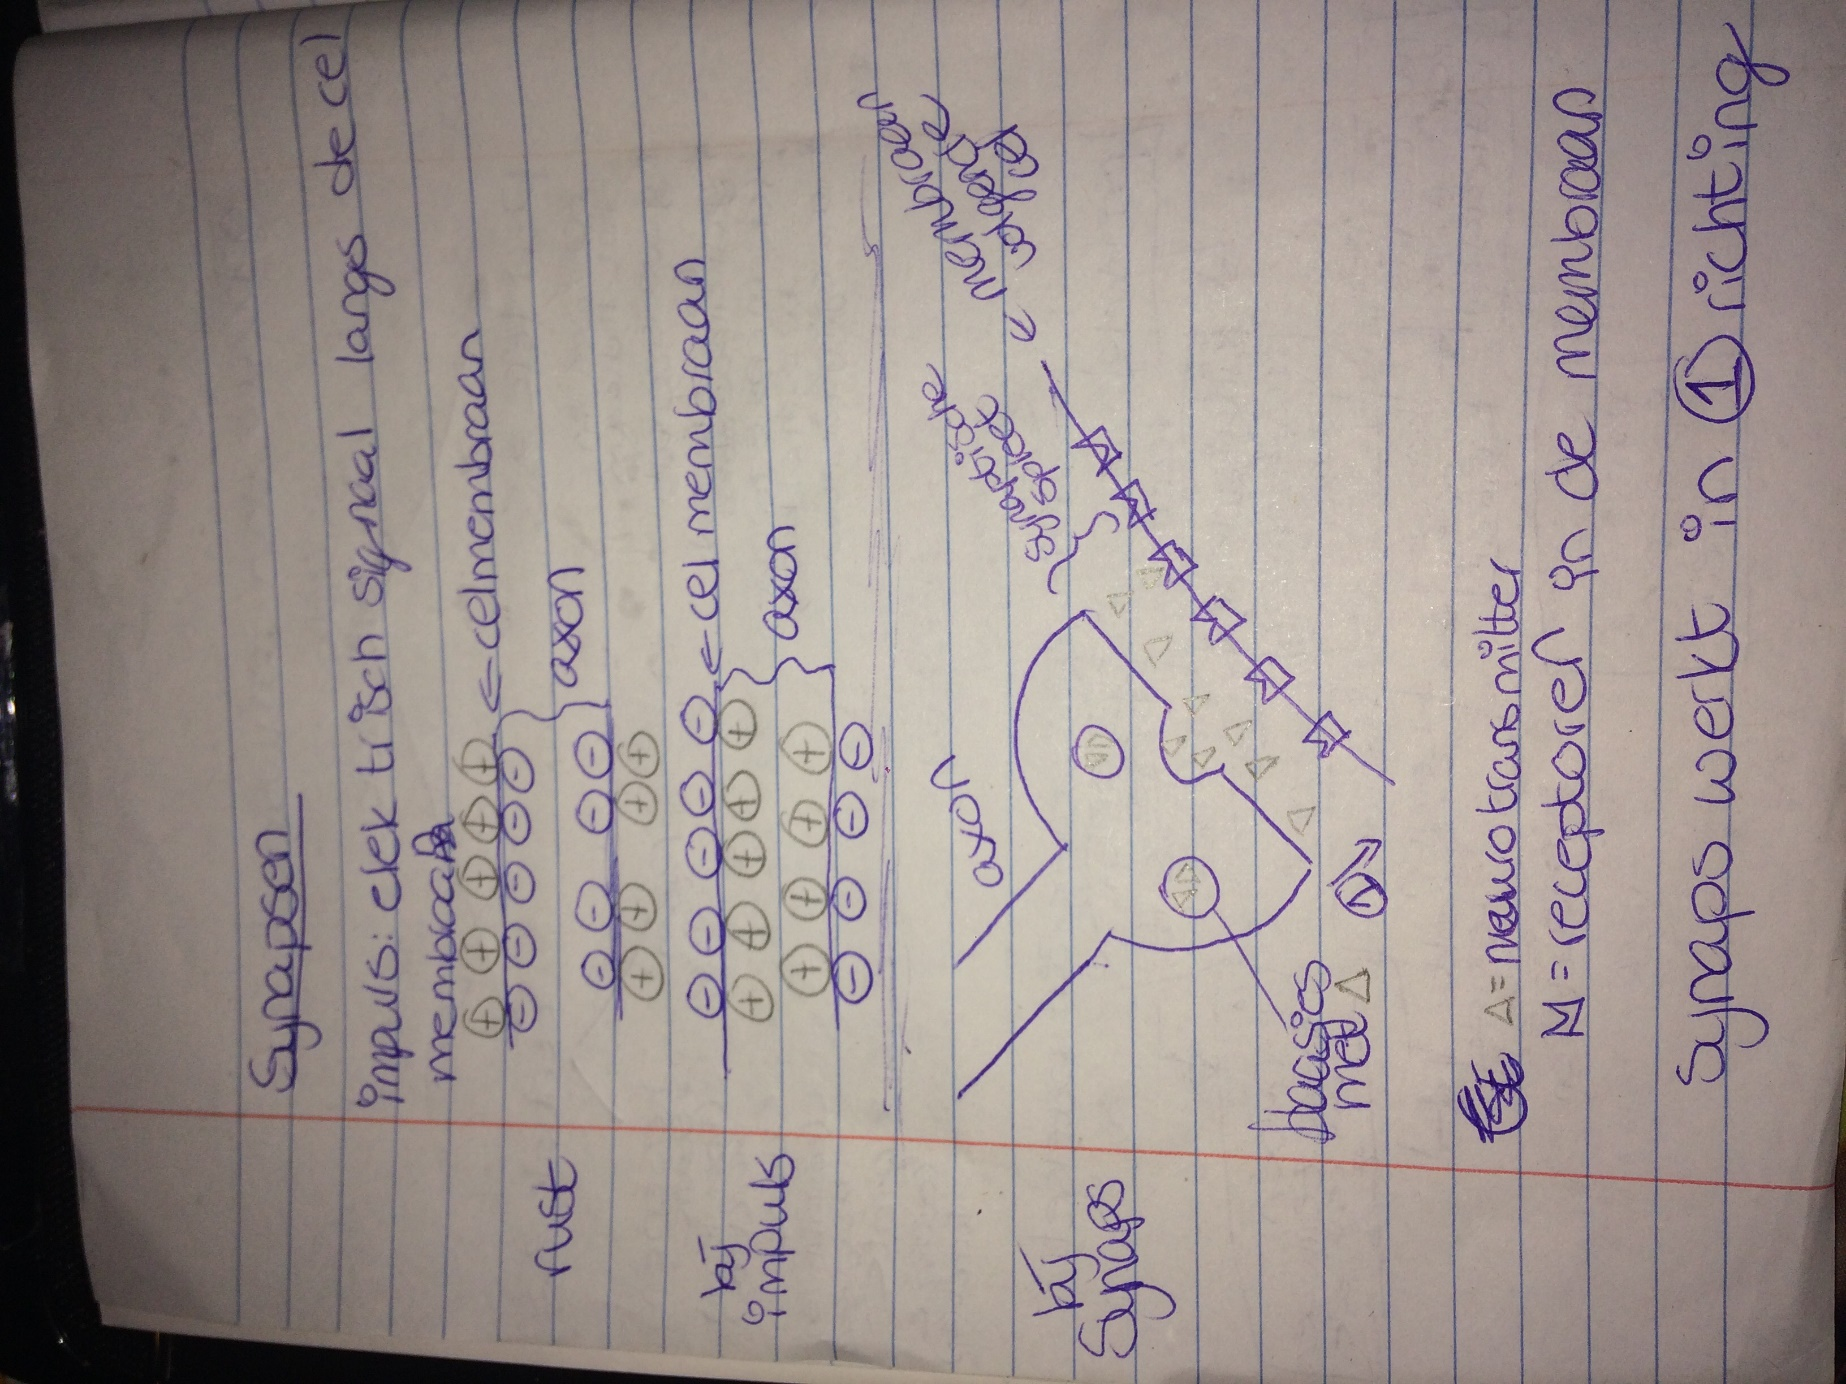 Synapsen
impuls: elektrisch signaal langs de cel
membraan
rust
+ + + + +
- - - - -
← celmembraan
axon
- - - -
+ + + +
bij
impuls
- - - - -
← cel membraan
+ + + + +
axon
+ + + +
- - - -
bij
Synaps
axon
synaptische
spleet
membraan
volgende
cel
blaasjes
met Δ
1
Δ = neurotransmitter
M = receptoren in de membraan
Synaps werkt in 1 richting